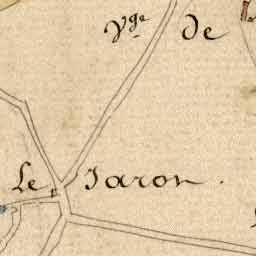 Vge de
Le Jaron.